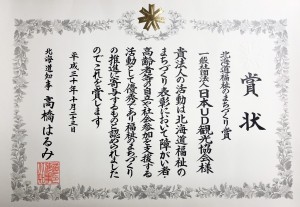 賞状
北海道福祉のまちづくり賞
一般社団法人日本UD観光協会様
貴法人の活動は北海道福祉の
まちづくり表彰において障がい者・
高齢者等の自立や社会参加を支援する
活動として優秀であり福祉のまちづくり
の推進に寄与するものと認められました
のでこれを賞します
平成三十年十月二十三日
北海道知事 高橋はるみ